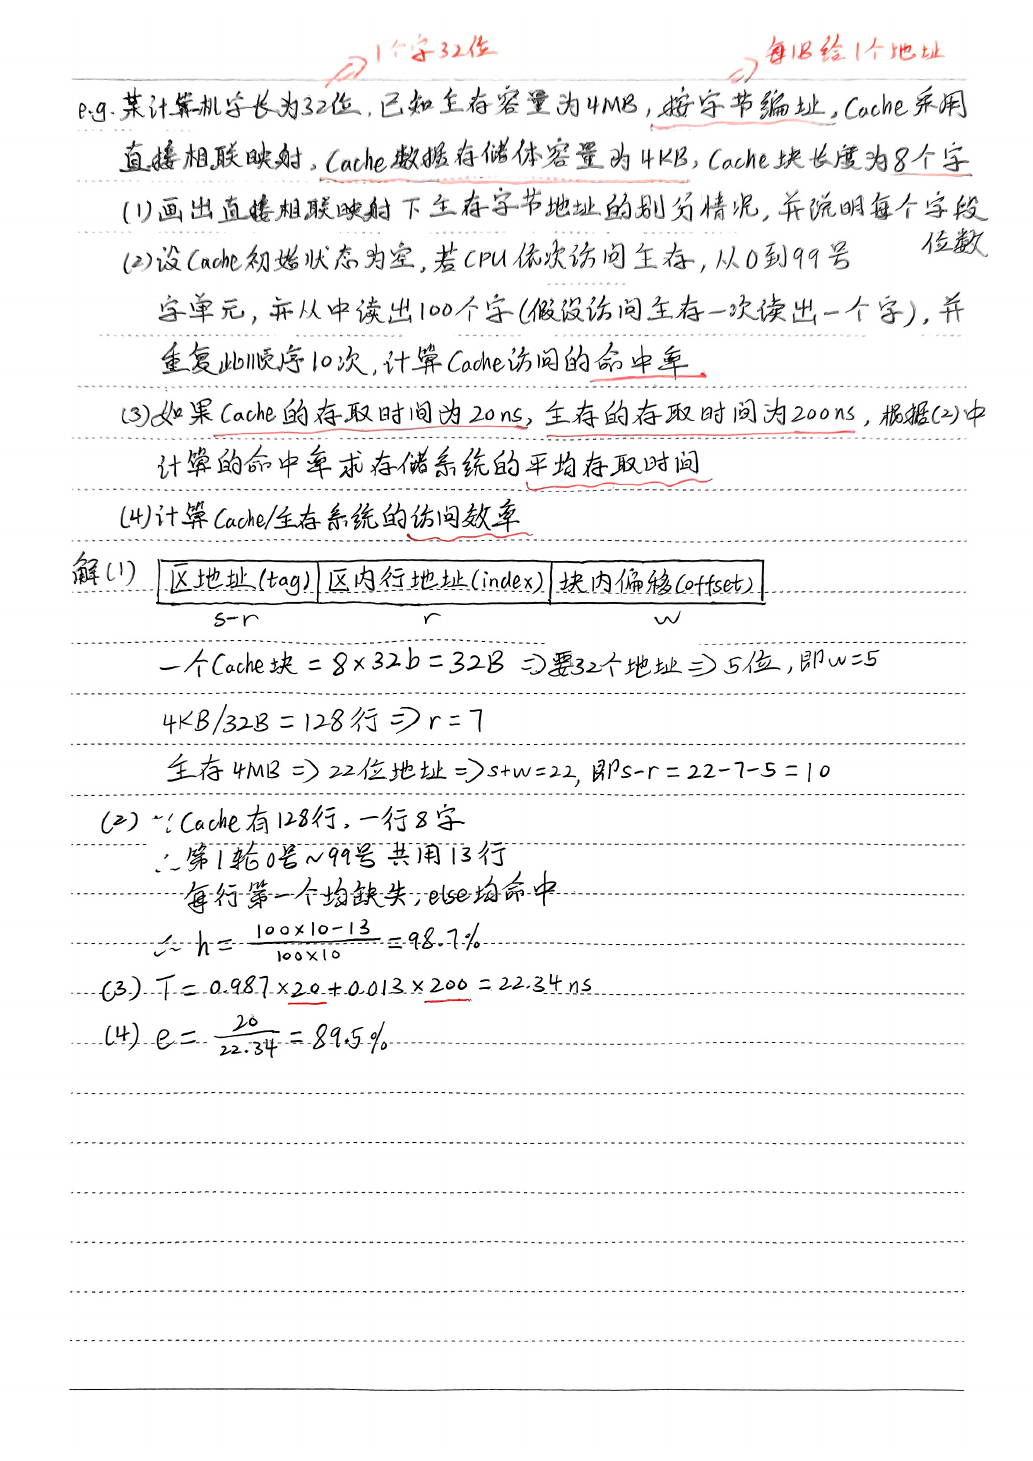 1个字32位
每1B给1个地址
e.g. 某计算机字长为32位,已知主存容量为4MB,按字节编址,Cache采用
直接相联映射,Cache数据存储体容量为4KB,Cache块长度为8个字
(1)画出直接相联映射下主存字节地址的划分情况,并说明每个字段
位数
(2)设Cache初始状态为空,若CPU依次访问主存,从0到99号
字单元,并从中读出100个字(假设访问主存一次读出一个字),并
重复此顺序10次,计算Cache访问的命中率.
(3)如果Cache的存取时间为20ns,主存的存取时间为200ns,根据(2)中
计算的命中率求存储系统的平均存取时间
(4)计算Cache/主存系统的访问效率
解(1) 区地址(tag) 区内行地址(index) 块内偏移(offset)
s-r r w
一个Cache块=8×32b=32B⇒要32个地址⇒5位,即w=5
4KB/32B=128行⇒r=7
主存4MB⇒22位地址⇒s+w=22,即s-r=22-7-5=10
(2) ∵Cache有128行,一行8字
∴第1轮0号~99号共用13行
每行第一个均缺失,else均命中
∴h=100×10-13/100×10=98.7%
(3) T=0.987×20+0.013×200=22.34ns
(4) e=20/22.34=89.5%